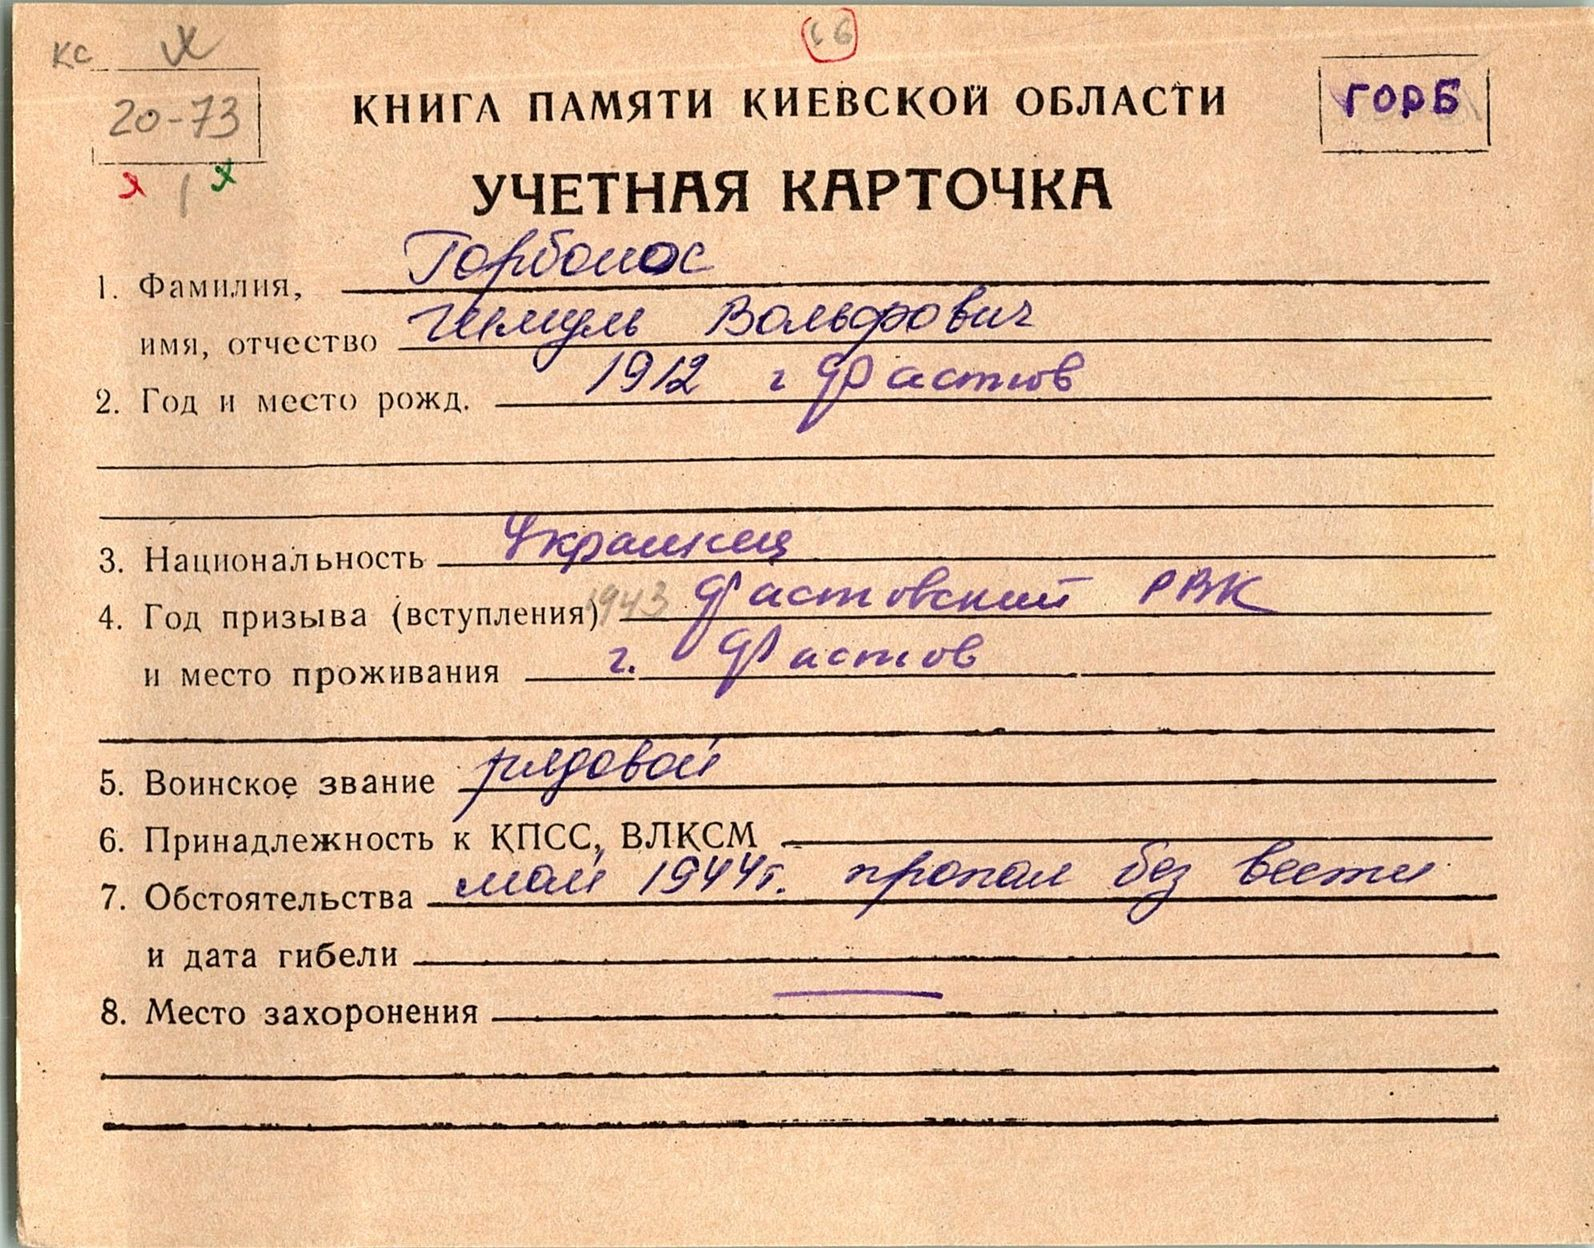 кс х
16
20-73
КНИГА ПАМЯТИ КИЕВСКОЙ ОБЛАСТИ
ГОРБ
УЧЕТНАЯ КАРТОЧКА
1. Фамилия, Горбонос
имя, отчество Шмуль Вольфович
2. Год и место рожд. 1912 г Фастов
3. Национальность Украинец
4. Год призыва (вступления) 1943 Фастовский РВК
и место проживания г. Фастов
5. Воинское звание рядовой
6. Принадлежность к КПСС, ВЛКСМ
7. Обстоятельства май 1944г. пропал без вести
и дата гибели
8. Место захоронения